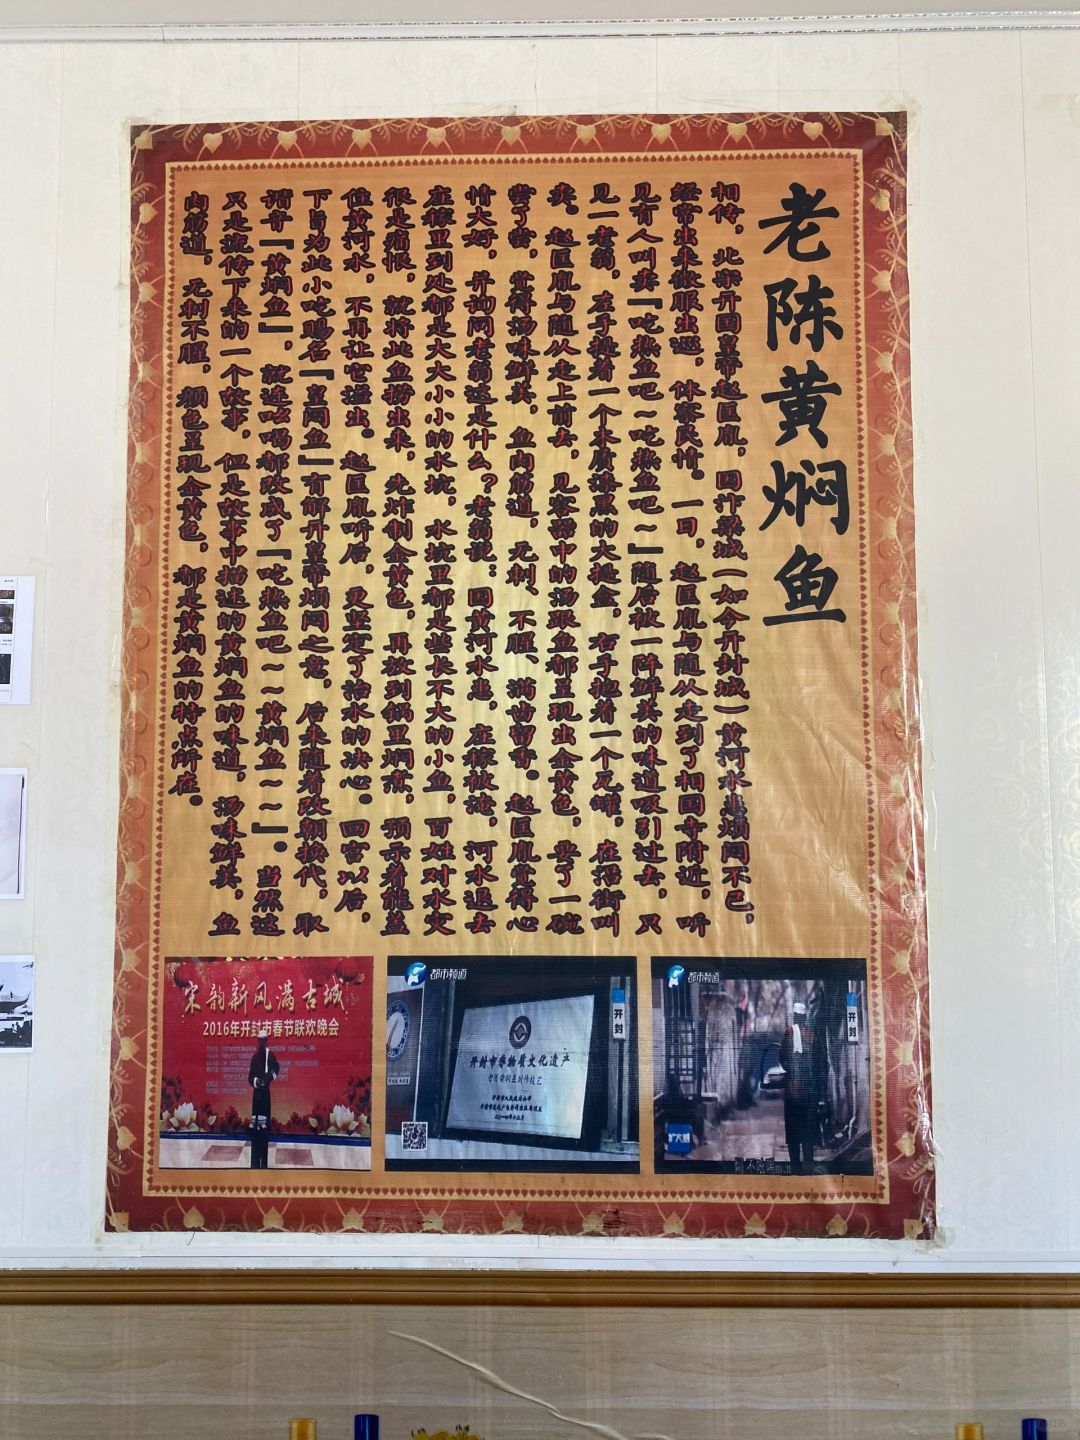 老陈黄焖鱼
相传，北宋开国皇帝赵匡胤，因汴梁城（如今开封城）黄河水患烦闷不已，
经常出来微服出巡，体察民情。一日，赵匡胤与随从走到了相国寺附近，听
见有人叫卖『吃热鱼吧~吃热鱼吧~』随后被一阵鲜美的味道吸引过去，只
见一老翁，左手提着一个木质漆黑的大提盒，右手抱着一个瓦罐，在沿街叫
卖。赵匡胤与随从走上前去，见容器中的汤跟鱼都呈现出金黄色，要了一碗
尝了尝，觉得汤味鲜美，鱼肉筋道，无刺、不腥、满齿留香。赵匡胤觉得心
情大好，并询问老翁这是什么？老翁说：因黄河水患，庄稼被淹，河水退去
庄稼里到处都是大大小小的水坑，水坑里都是些长不大的小鱼，百姓对水灾
很是痛恨，就将此鱼捞出来，先炸制金黄色，再放到锅里焖煮，预示着能盖
位黄河水，不再让它溢出。赵匡胤听后，更坚定了治水的决心。回宫以后，
下旨为此小吃赐名『皇闷鱼』有解开皇帝烦闷之意，后来随着改朝换代，取
谐音『黄焖鱼』，就连吆喝都改成了『吃热鱼吧~~黄焖鱼~~』。当然这
只是流传下来的一个故事，但是故事中描述的黄焖鱼的味道，汤味鲜美，鱼
肉筋道，无刺不腥，颜色呈现金黄色，都是黄焖鱼的特点所在。
宋韵新风满古城
2016年开封市春节联欢晚会
都市频道
开封
开封市非物质文化遗产
老陈黄焖鱼制作技艺
开封市人民政府公布
二〇一四年十二月
都市频道
开封
扩大镜